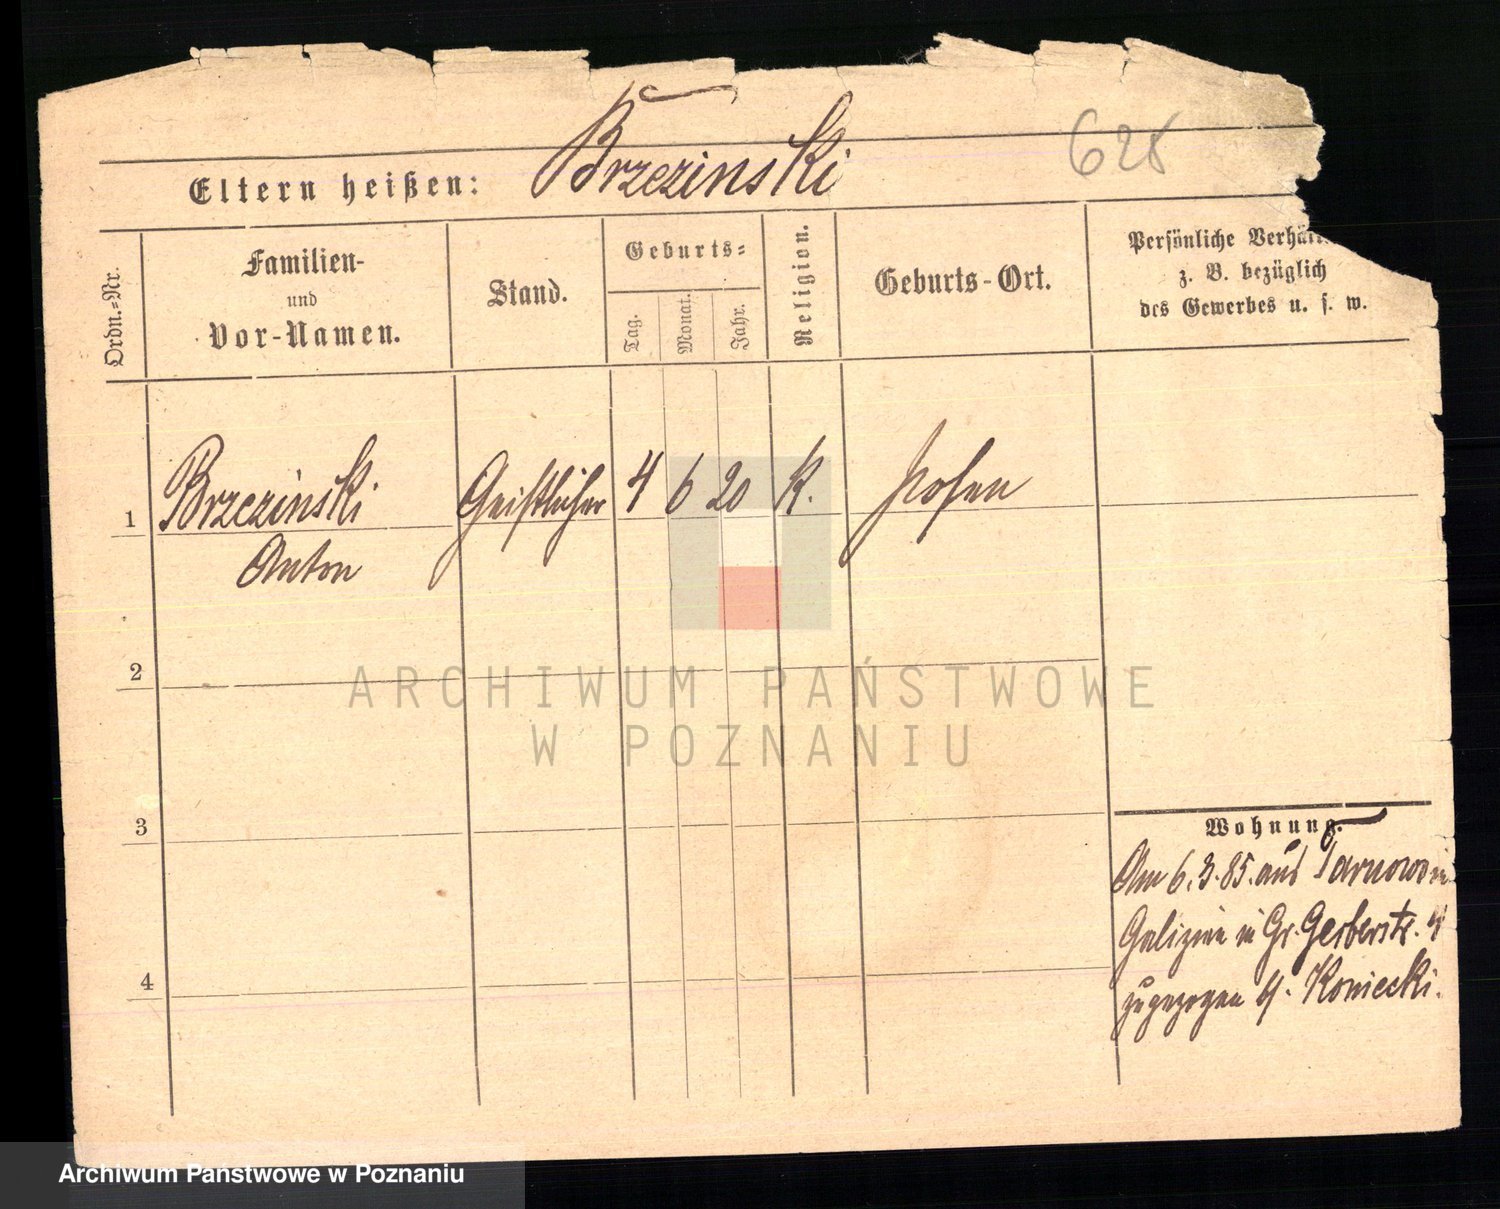 628
Eltern heißen: Brzezinski
Ordn.-Nr.
Familien-
und
Vor-Namen.
Stand.
Geburts-
Tag.
Monat.
Jahr.
Religion.
Geburts-Ort.
Persönliche
z. B. bezüglich
des Gewerbes u. s. w.
1 Brzezinski Geistlicher 4 6 20 K. Posen
Anton
2
3
4
Wohnung.
Am 6.3.85. aus Tarnowo in
Galizien in Gr. Gerberstr. 4
zugezogen b/. Koniecki.
ARCHIWUM PAŃSTWOWE
W POZNANIU
Archiwum Państwowe w Poznaniu